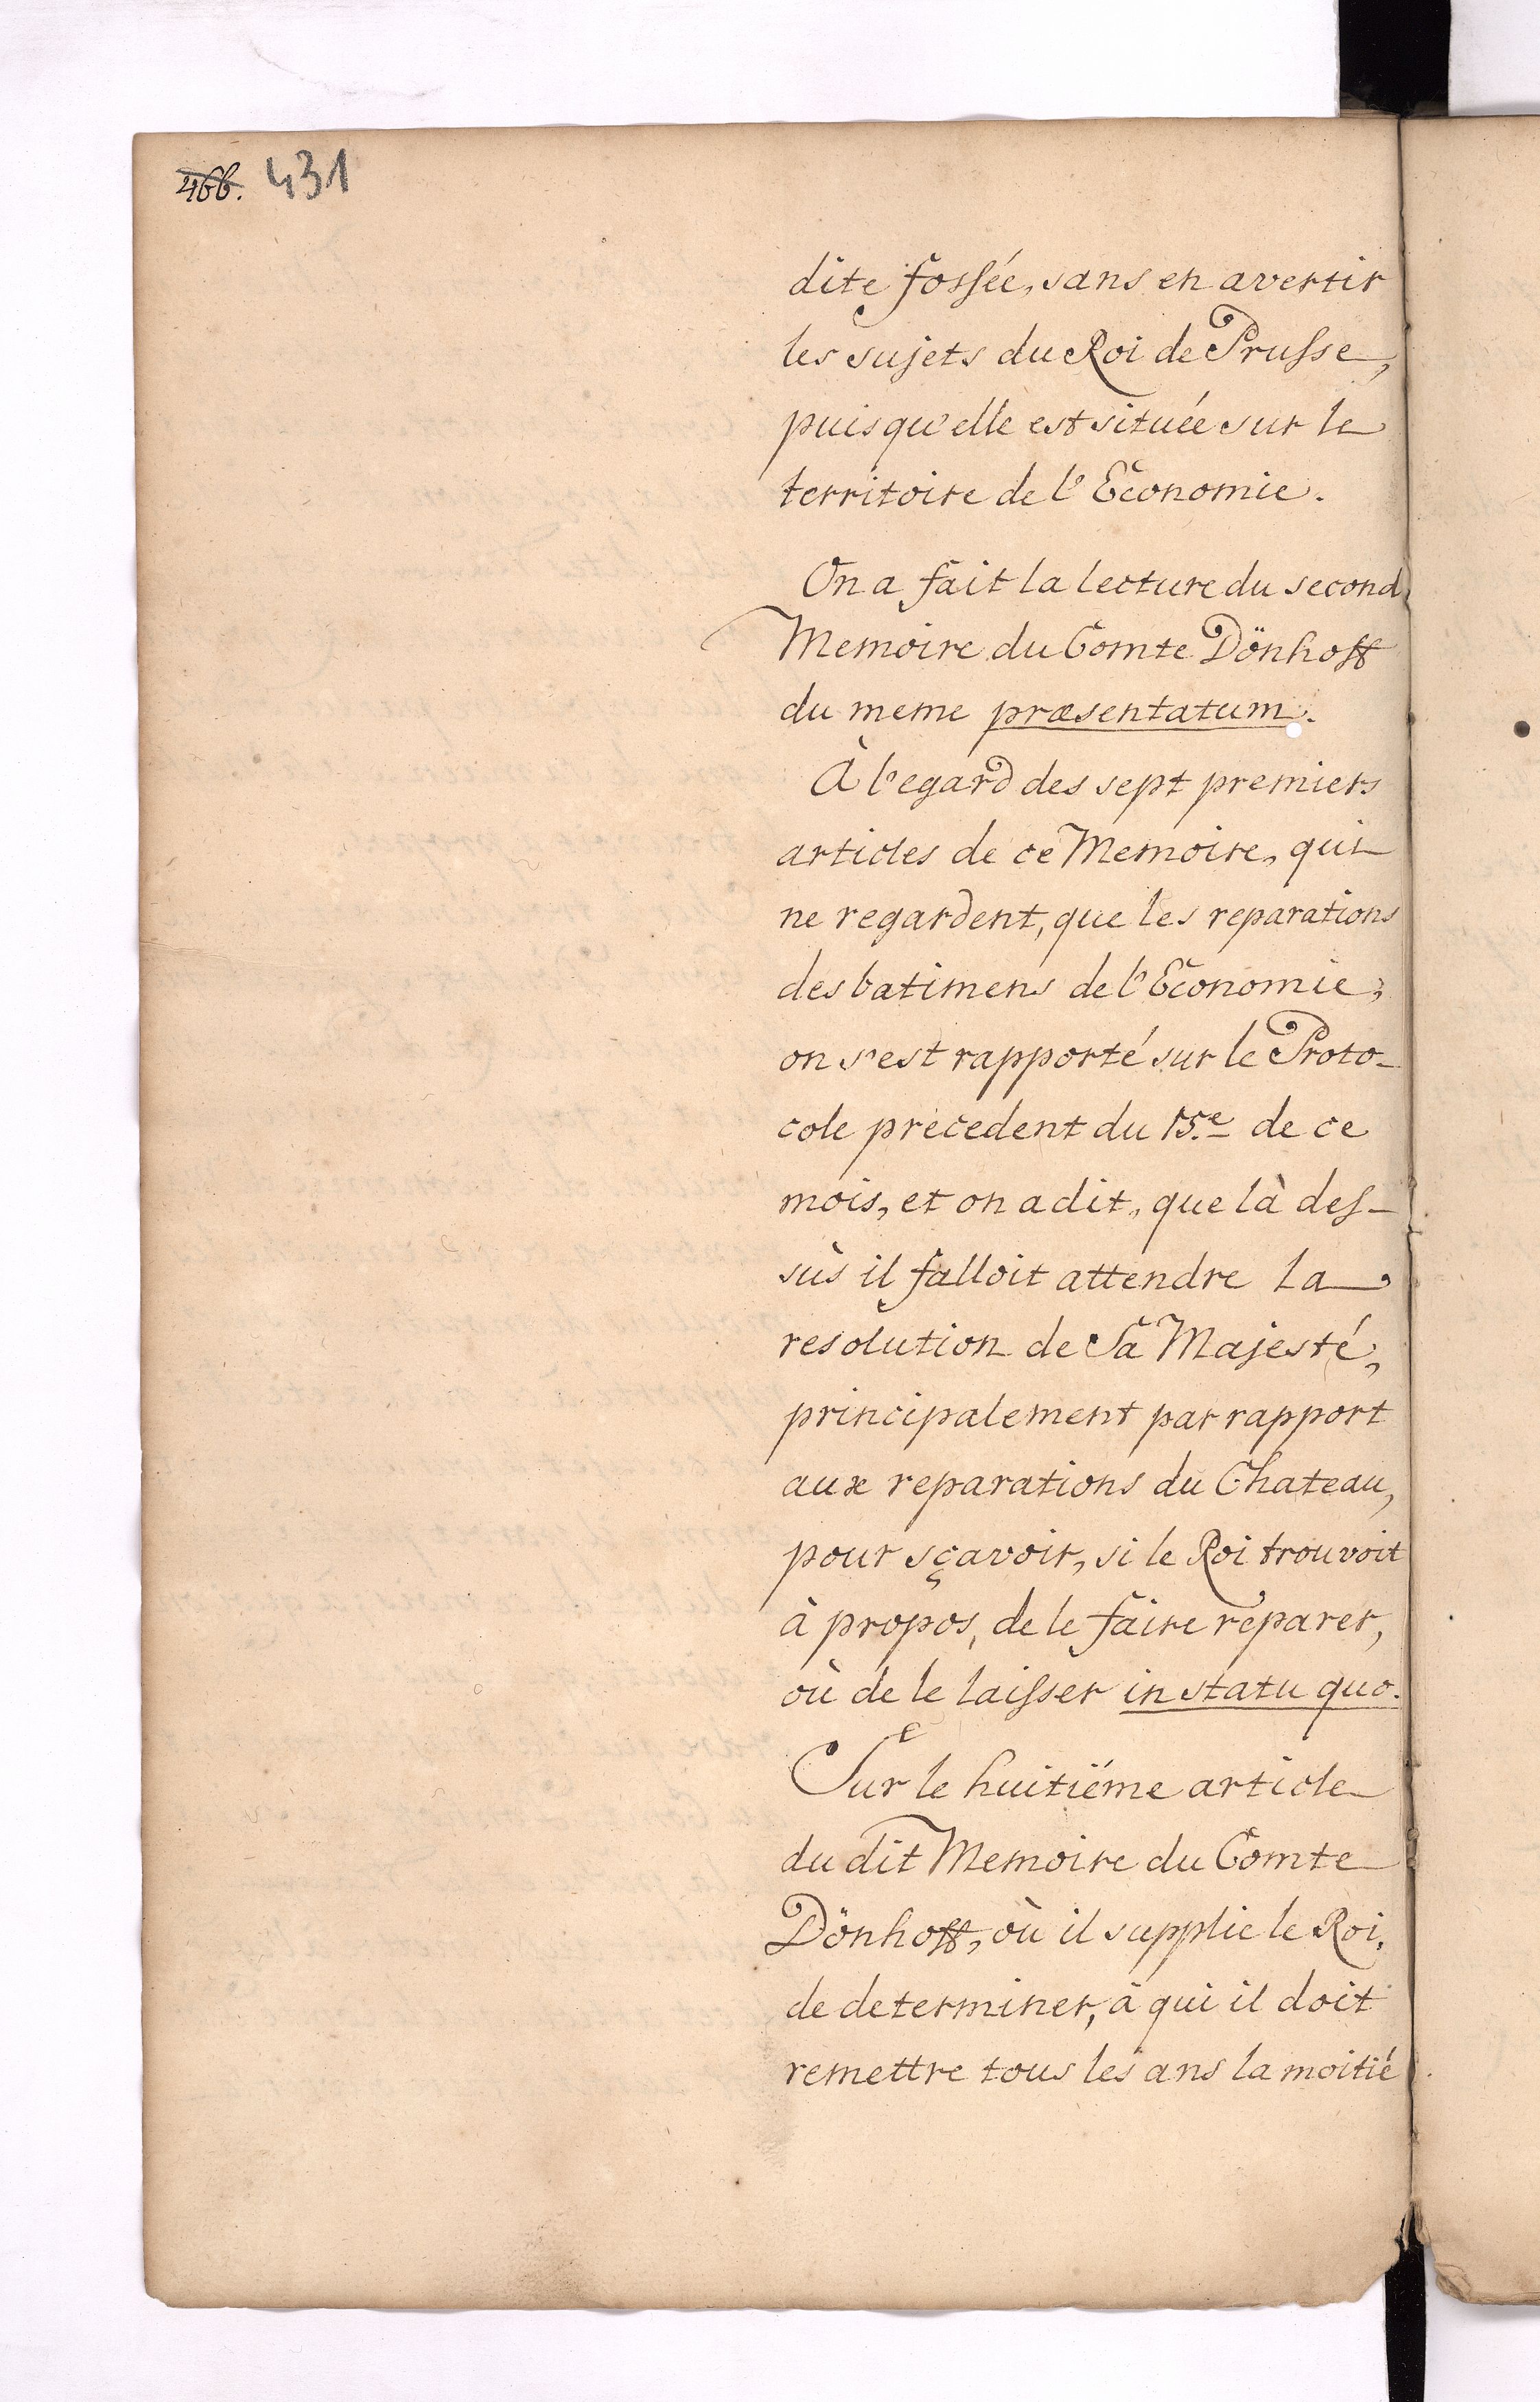 466. 431
dite fossée, sans en avertir
les sujets du Roi de Prusse,
puisqu'elle est située sur le
territoire de l'Economie.
On a fait la lecture du second
Memoire du Comte Dönhoff
du meme præsentatum.
À l'egard des sept premiers
articles de ce Memoire, qui
ne regardent, que les reparations
des batimens de l'Economie,
on s'est rapporté sur le Proto-
cole precedent du 15.e de ce
mois, et on a dit, que là des-
sùs il falloit attendre la
resolution de Sa Majesté,
principalement par rapport
aux reparations du Chateau,
pour sçavoir, si le Roi trouvoit
à propos, de le faire reparer,
où de le laisser in statu quo.
Sur le huitiéme article
du dit Memoire du Comte
Dönhoff, où il supplie le Roi,
de determiner, à qui il doit
remettre tous les ans la moitié